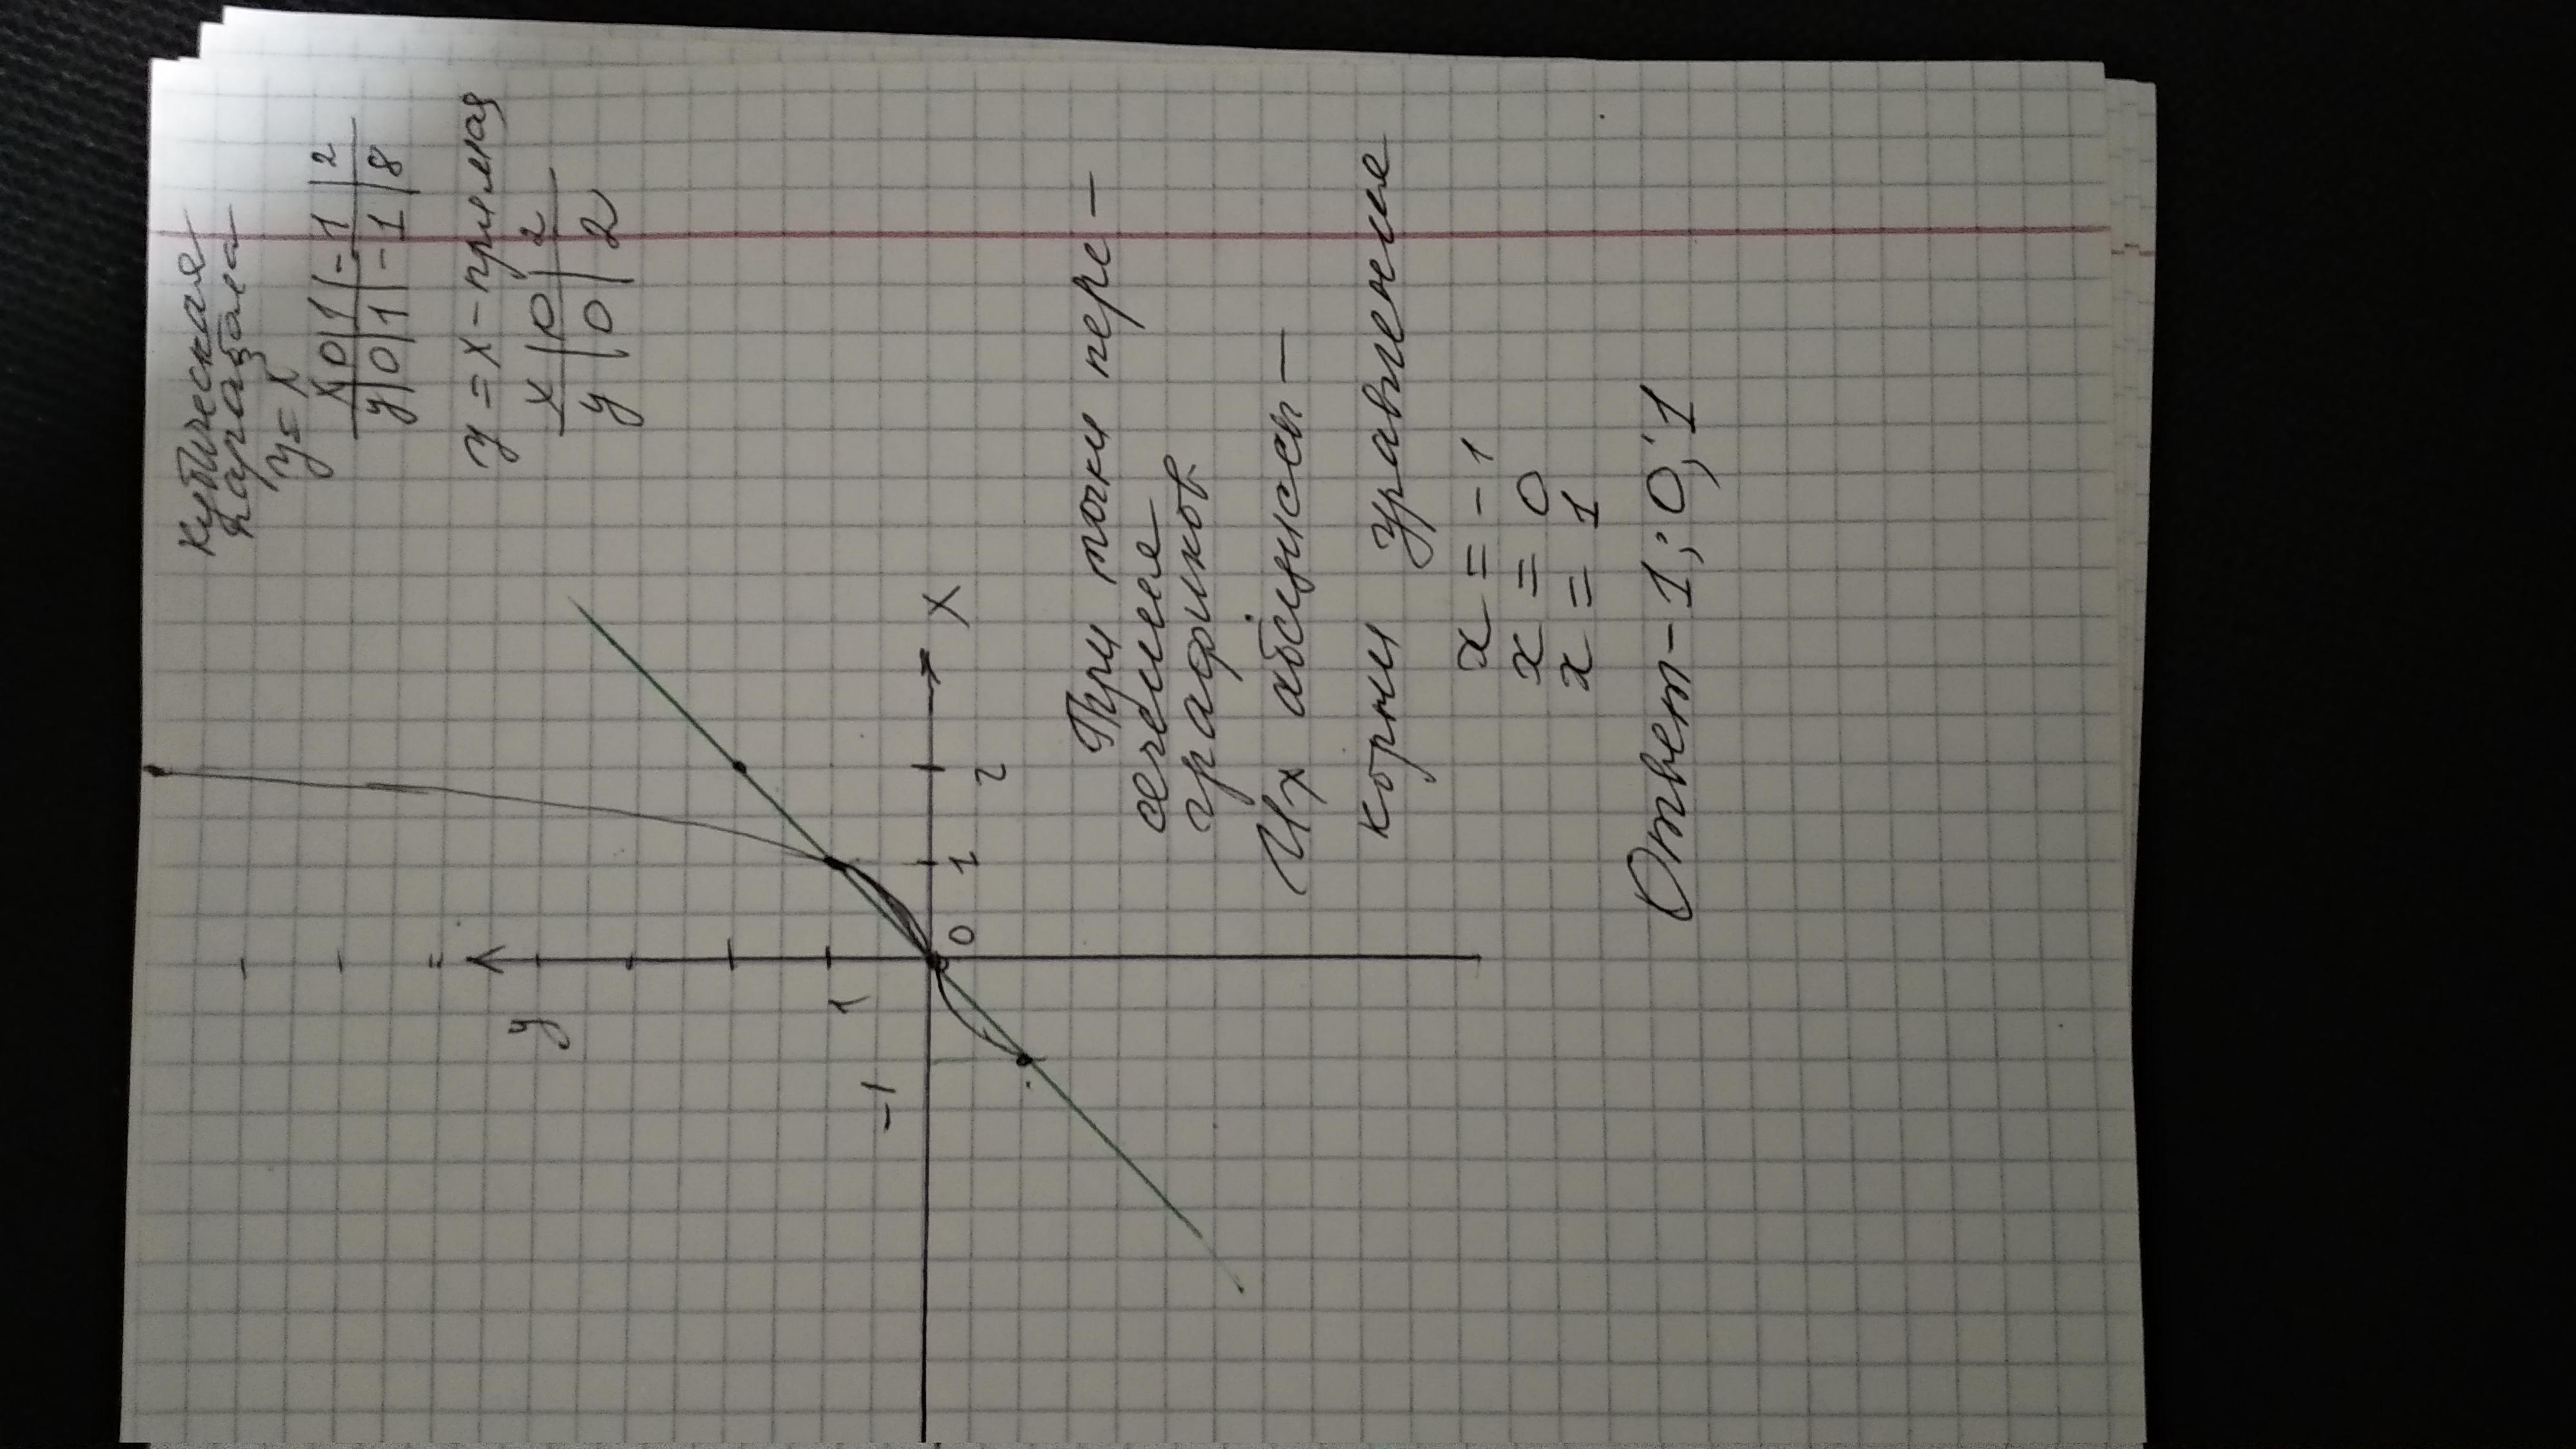 кубическая
парабала
y = x³
x | 0 | 1 | -1 | 2
y | 0 | 1 | -1 | 8
y = x - прямая
x | 0 | 2
y | 0 | 2
y
1
-1
0
1
2
x
При точки пере-
сечения
графиков
Их абсциссы -
корни уравнение
x = -1
x = 0
x = 1
Ответ -1; 0; 1